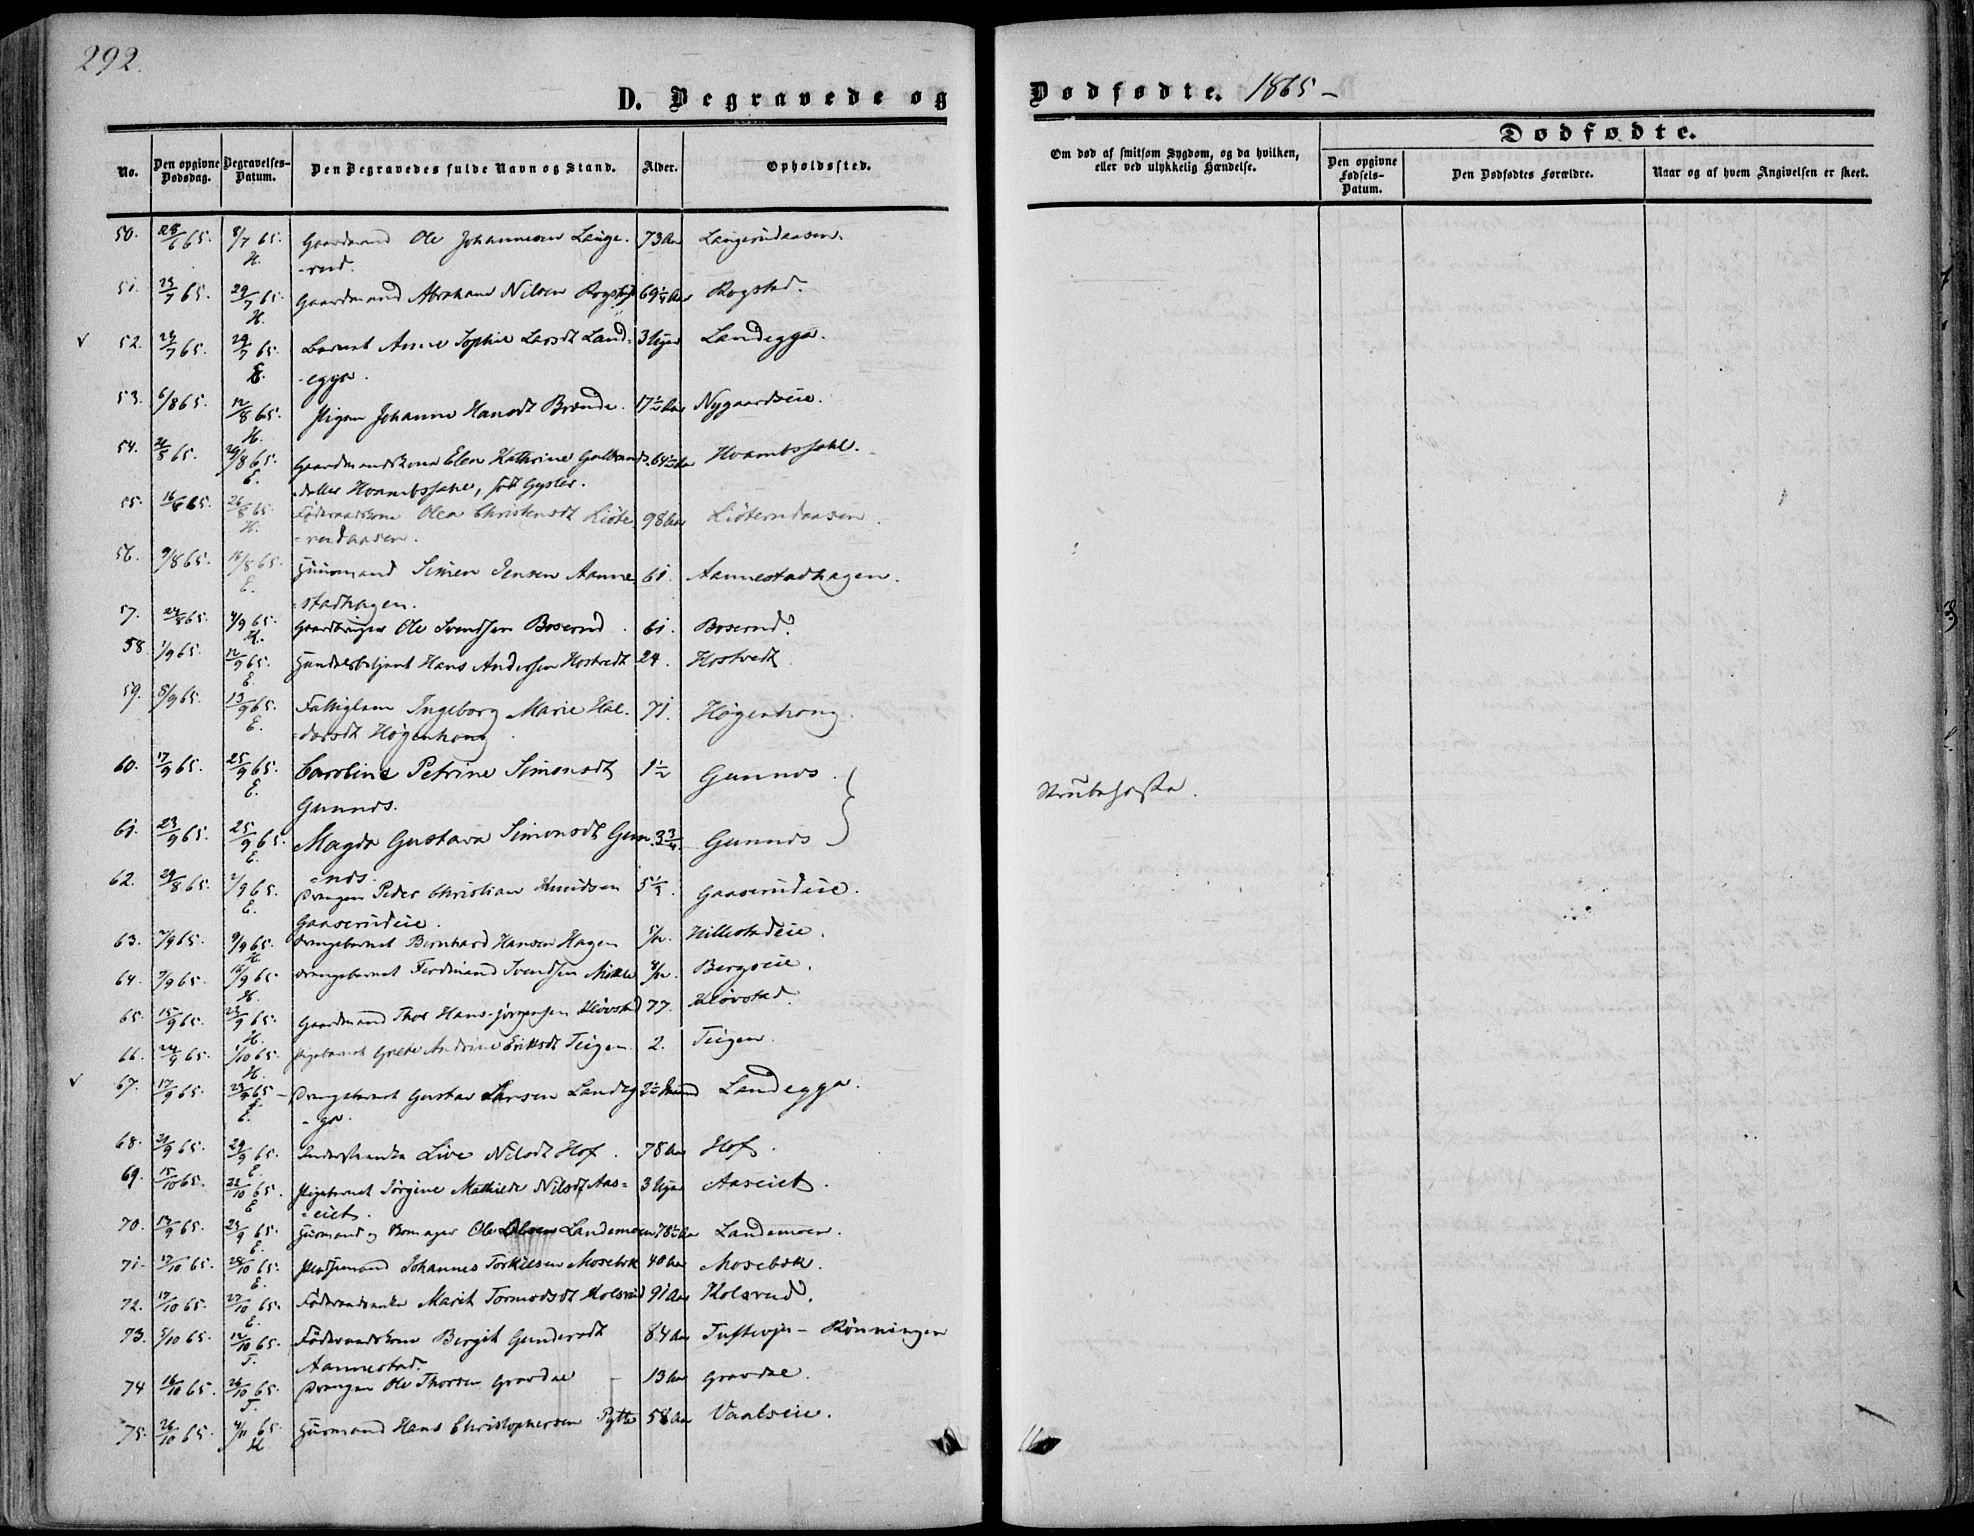 292.
D. Begravede og
Dødfødte. 1865 –
No.
Den opgivne Dødsdag.
Begravelses-Datum.
Den Begravedes fulde Navn og Stand.
Alder.
Opholdssted.
Om død af smitsom Sygdom, og da hvilken, eller ved ulykkelig Hændelse.
Dødfødte.
Den opgivne Fødsels-Datum.
Den Dødfødtes Forældre.
Naar og af hvem Angivelsen er skeet.
50. 28/6 65. 8/7 65. H. Gaardmand Ole Johannesen Lauge- 73 Aar Laugerudaasen.
-rud.
51. 23/7 65. 29/7 65. H. Gaardmand Abraham Nilsen Rogstad 69 1/4 Aar Rogstad.
52. 29/7 65. E. Barnet Anne Sophie Larsdt Land- 3 Uger Landegga.
-egga.
53. 6/8 65. 12/8 65. H. Pigen Johanne Hansdt Brænde. 17 1/2 Aar Nygaardseie.
54. 65. 65. E. Gaardmandskone Elen Kathrine Gulbrands. Hvambsfahl.
datter Hvambsfahl, født Gysler.
55. 65. 26/8 65. H. Føderaadskone Olea Christensdt Liöte- 98 Aar Liöterudaasen.
-rudaasen.
56. 9/8 65. 16/8 65. E. Huusmand Simen Jensen Aanne- 61. Aannestadhagen.
-stadhagen.
57. 65. 4/9 65. H. Gaardbruger Ole Svendsen Boserud. 61. Boserud.
58. 1/9 65. 12/9 65. E. Handelsbetjent Hans Andersen Hostvedt 24. Hostvedt
59. 5/9 65. 13/9 65. E. Fattiglem Ingeborg Marie Hal- 71. Högenhoug.
-dorsdt Högenhoug.
60. 17/9 65. 25/9 65. E. Caroline Petrine Simonsdt 1 1/2 Gunnos.
Gunnos.
61. 23/9 65. 25/9 65. E. Magda Gustava Simonsdt Gun- 3 3/4. Gunnos
-nos.
Strubehoste.
62. 29/8 65. 2/9 65. E. Drengen Peder Christian Knudsen Gaaserudeie.
Gaaserudeie.
63. 2/9 65. 9/9 65. H. Drengebarnet Bernhard Hansen Hagen 5/12. Hillestadeie.
64. 9/9 65. 16/9 65. H. Drengebarnet Ferdinand Svendsen 4/12. Bergseie.
65. 15/9 65. 23/9 65. H. Gaardmand Thor Hans-Jørgensen Kløvstad 77. Kløvstad.
66. 65. 1/10 65. H. Pigebarnet Grethe Andrine Eriksdt Teigen 2. Teigen.
67. 17/9 65. 23/9 65 E. Drengebarnet Gustav Larsen Landeg- Maaned Landegga.
-ga.
68. 21/9 65. 29/9 65. E. Inderstenke Live Nilsdt Hof. 78 Aar Hof.
69. 15/10 65. 22/10 65. E. Pigebarnet Jörgine Mathilde Nilsdt Aas- 3 Uger Aaseiet.
-eiet.
70. 17/9 65. 23/9 65. E. Huusmand og Ole Olsen Landemoen 78 1/2 Aar Landemoen.
71. 17/10 65. 28/10 65. E. Pladsemand Johannes Torkilsen Mosebæk 40 Aar Mosebæk.
72. 17/10 65. 27/10 65. E. Føderaadsenke Marit Tormodsdt Kolsrud 91 Aar Kolsrud.
73. 5/10 65. 12/10 65. T. Føderaadskone Bergit Gundersdt 84 Aar – Rønningen
Aannestad.
74 16/10 65. 26/10 65. T. Drengen Ole Thorsen Gravdae 13 Aar Gravdae.
75. 26/10 65. 4/11 65. H. Huusmand Hans Christophersen Pytte 58 Aar Vaalseie.